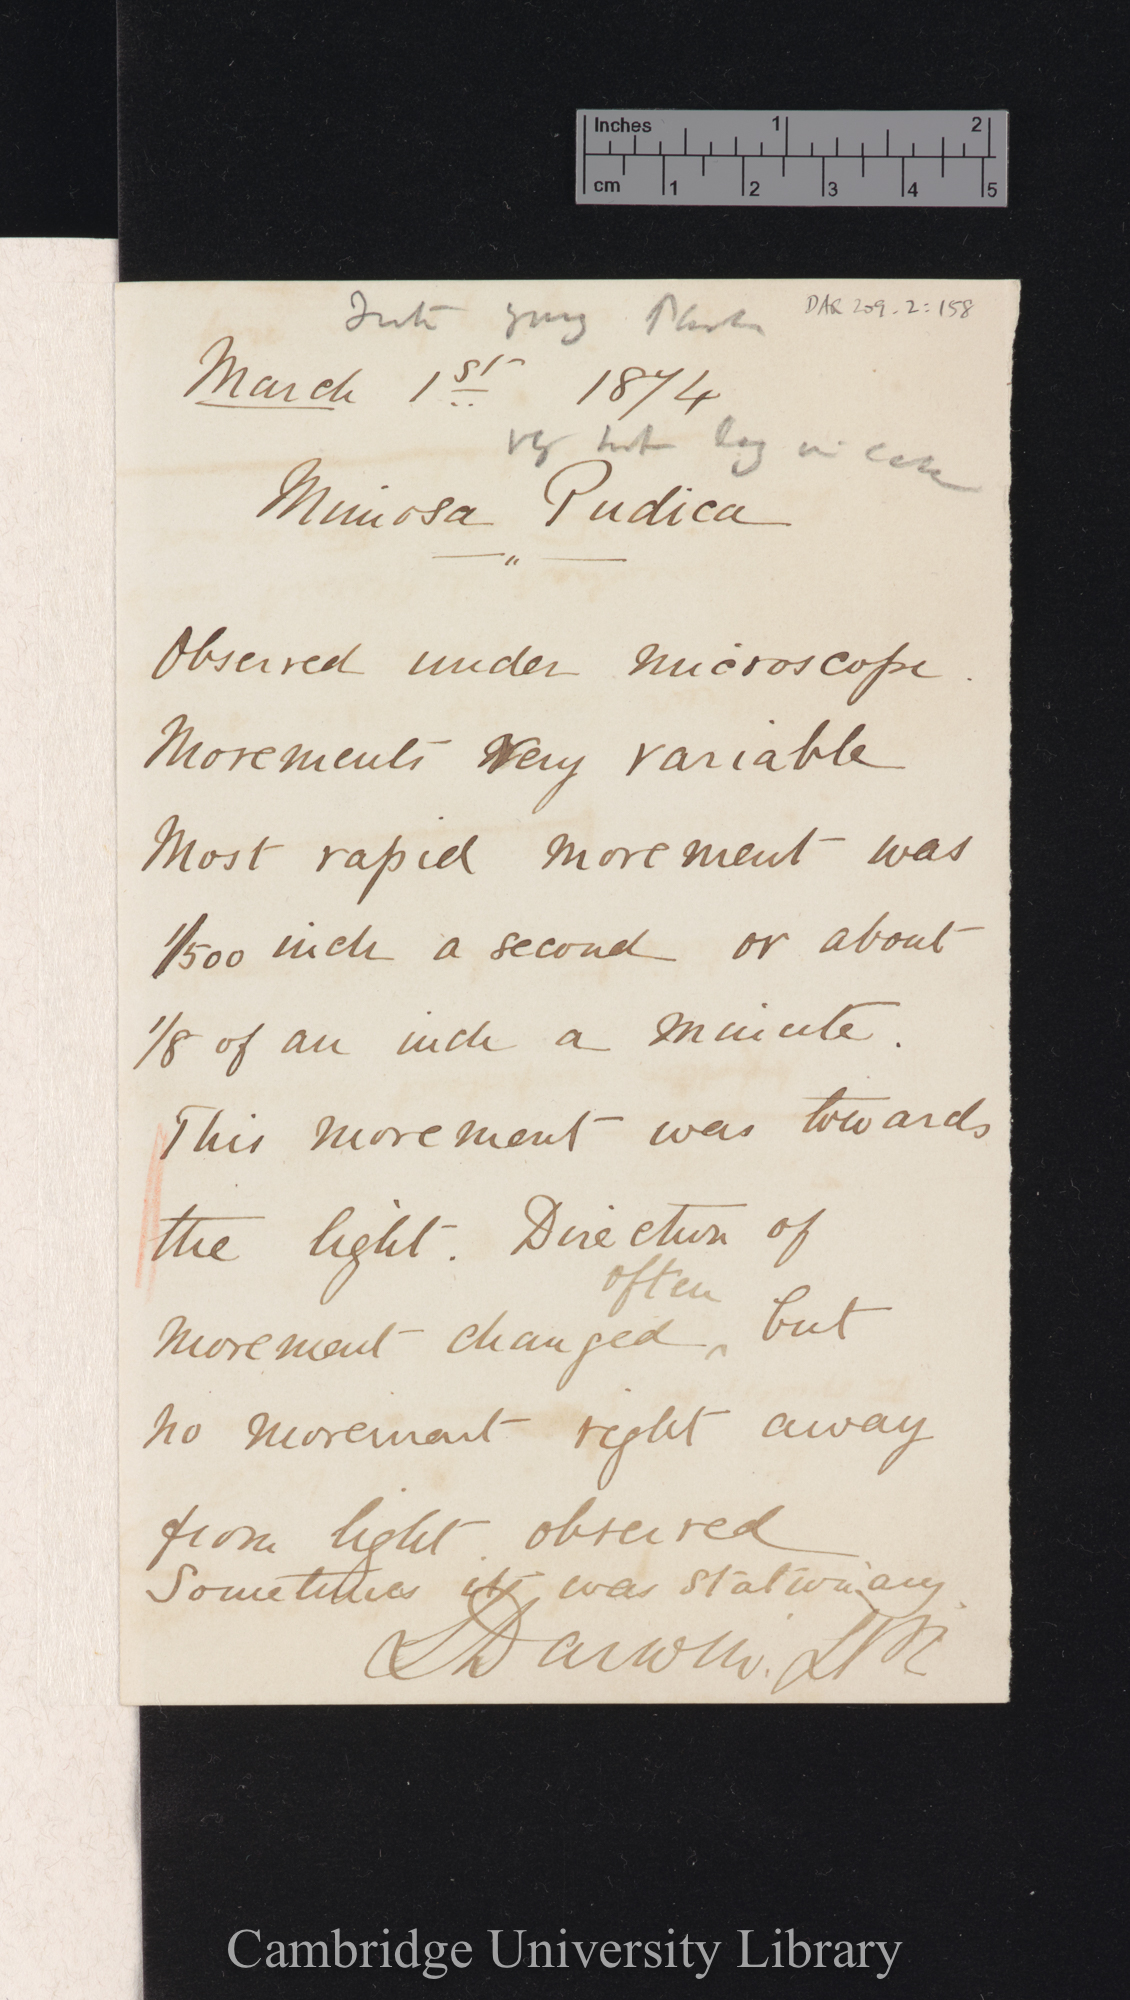 Inches 1 2
cm 1 2 3 4 5
DAR 209.2:158
young Plants
March 1st 1874
hot day in
Mimosa Pudica
"
Observed under microscope.
Movements very variable
Most rapid movement was
1/500 inch a second or about
1/8 of an inch a minute.
This movement was towards
the light. Direction of
often
movement changed ^ but
no movement right away
from light observed
Sometimes it was stationary.
Darwin.
Cambridge University Library